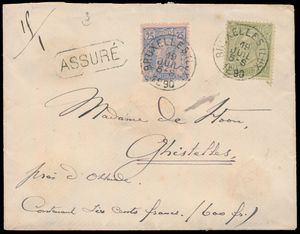 ASSURÉ
25 25
BRUXELLES
18
JUIL
5-S
1890
BRUXELLES
18
JUIL
5-S
1890
Madame de Hoon,
Ghistelles,
près d'Ostende.
Contenant six cents francs. (600 frs)